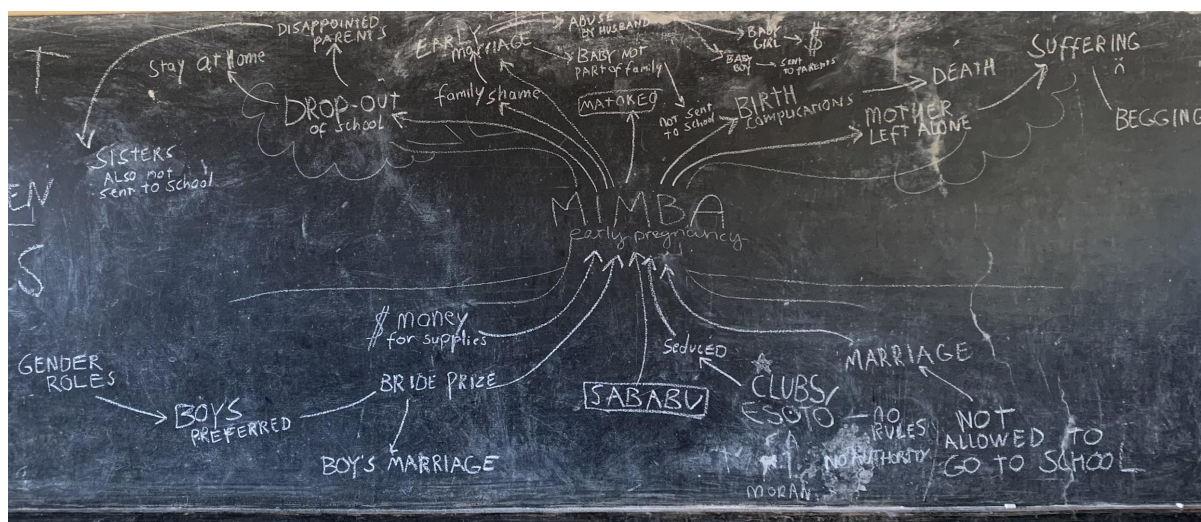 T
EN
S
DISAPPOINTED
PARENTS
Stay at Home
DROP-OUT
of school
SISTERS
ALSO not
sent to School
EARLY
marriage
family shame
ABUSE
BY HUSBAND
BABY NOT
PART of family
BABY
GIRL
$
BABY
BOY
SENT
TO PARENTS
NOT SENT
TO School
MATOKEO
BIRTH
COMPLICATIONS
DEATH
MOTHER
LEFT ALONE
SUFFERING
BEGGING
MIMBA
early pregnancy
$ money
for supplies
GENDER
ROLES
BOY'S
PREFERRED
BRIDE PRIZE
BOY'S MARRIAGE
SABABU
SEDUCED
CLUBS/
ESOTO
NO
RULES
NO AUTHORITY
MORAN
MARRIAGE
NOT
ALLOWED TO
GO TO SCHOOL